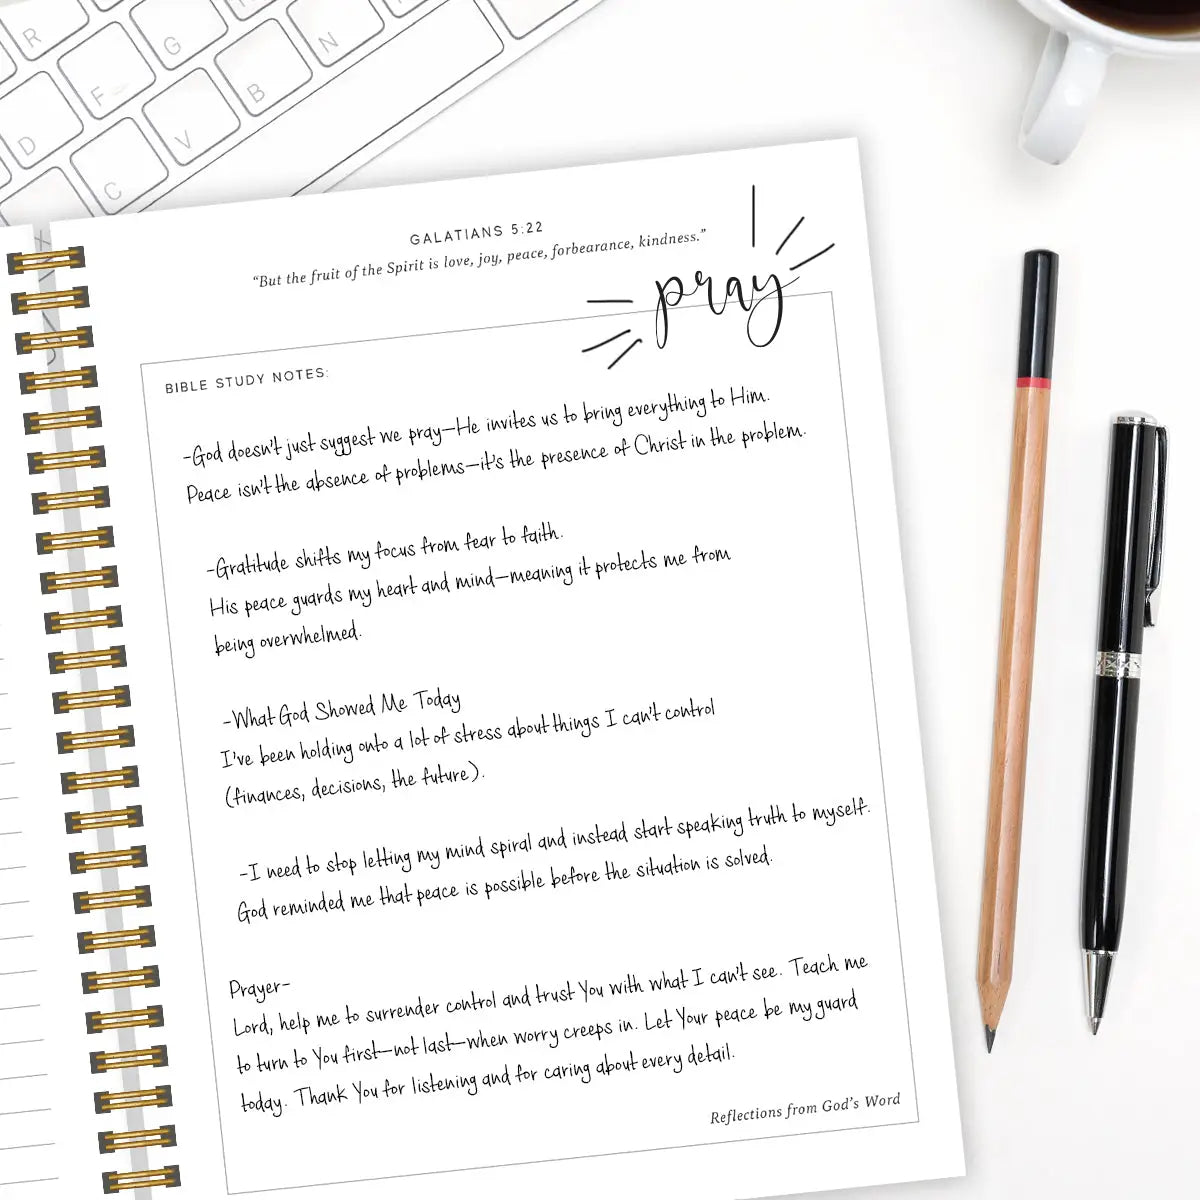 R
G
N
F
B
D
V
C
GALATIANS 5:22
“But the fruit of the Spirit is love, joy, peace, forbearance, kindness.”
pray
BIBLE STUDY NOTES:
-God doesn't just suggest we pray—He invites us to bring everything to Him.
Peace isn't the absence of problems—it's the presence of Christ in the problem.
-Gratitude shifts my focus from fear to faith.
His peace guards my heart and mind—meaning it protects me from
being overwhelmed.
-What God Showed Me Today
I've been holding onto a lot of stress about things I can't control
(finances, decisions, the future).
-I need to stop letting my mind spiral and instead start speaking truth to myself.
God reminded me that peace is possible before the situation is solved.
Prayer-
Lord, help me to surrender control and trust You with what I can't see. Teach me
to turn to You first—not last—when worry creeps in. Let Your peace be my guard
today. Thank You for listening and for caring about every detail.
Reflections from God's Word